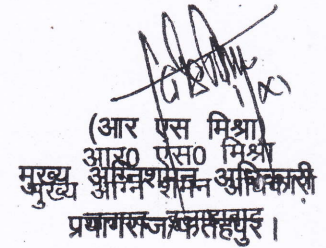 (आर एस मिश्रा)
आर0 एस0 मिश्रा
मुख्य अग्निशमन अधिकारी
मुख्य अग्नि शमन अधिकारी
प्रयागराज/फतेहपुर।